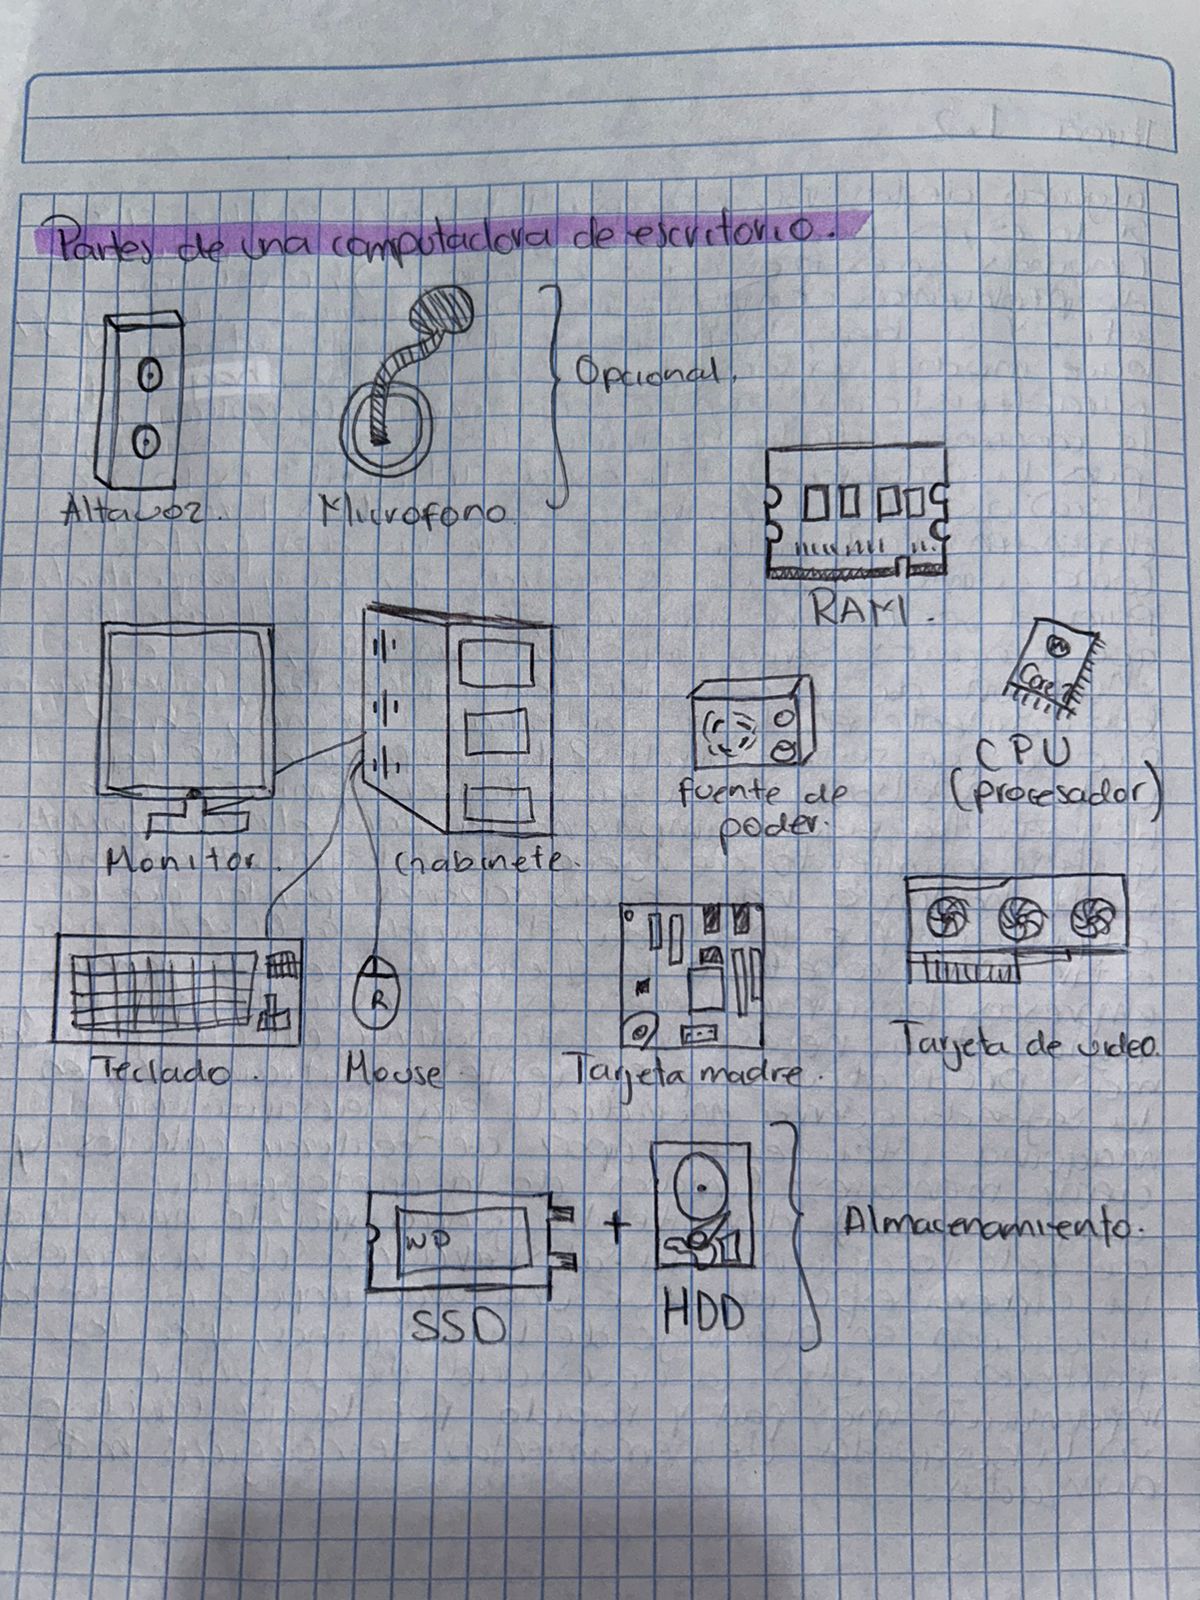 Partes de una computadora de escritorio.
Opcional.
Altavoz.
Microfono
RAM.
Core i7
CPU
(procesador)
fuente de
poder.
Monitor.
Gabinete.
R
Teclado.
Mouse
Tarjeta madre.
Tarjeta de video.
WD
+
Almacenamiento.
SSD
HDD